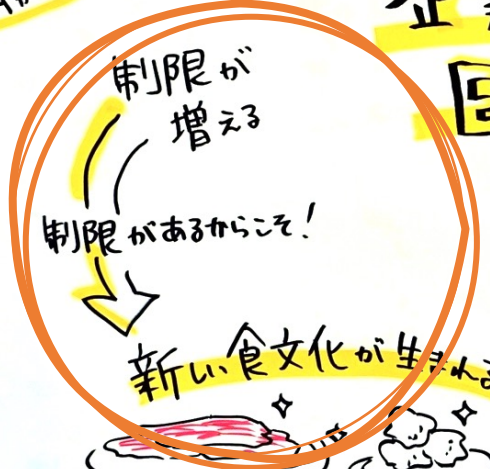 制限が
増える
制限があるからこそ!
新しい食文化が生まれる